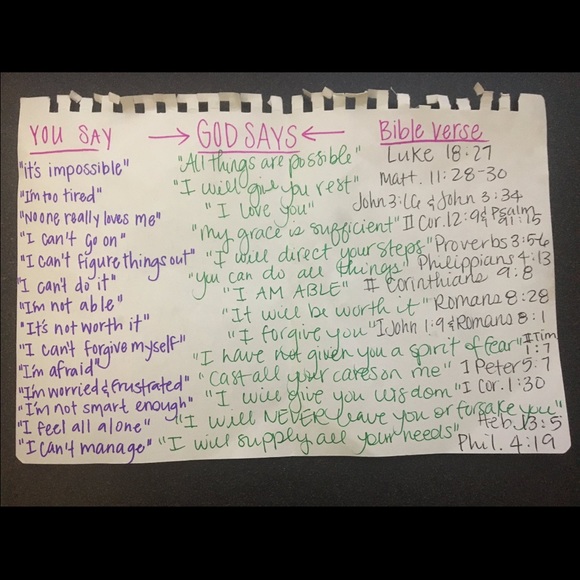 YOU SAY → GOD SAYS ← Bible verse
"it's impossible" "All things are possible" Luke 18:27
"I'm too tired" "I will give you rest" Matt. 11:28-30
"No one really loves me" "I love you" John 3:16 & John 3:34
"I can't go on" "my grace is sufficient" II Cor. 12:9 & Psalm 91:15
"I can't figure things out" "I will direct your steps" Proverbs 3:5-6
"I can't do it" "you can do all things" Philippians 4:13
"I'm not able" "I AM ABLE" II Corinthians 9:8
"It's not worth it" "It will be worth it" Romans 8:28
"I can't forgive myself" "I forgive you" I John 1:9 & Romans 8:1
"I'm afraid" "I have not given you a spirit of fear" II Tim 1:7
"I'm worried & frustrated" "Cast all your cares on me" I Peter 5:7
"I'm not smart enough" "I will give you wisdom" I Cor. 1:30
"I feel all alone" "I will NEVER leave you or forsake you" Heb. 13:5
"I can't manage" "I will supply all your needs" Phil. 4:19